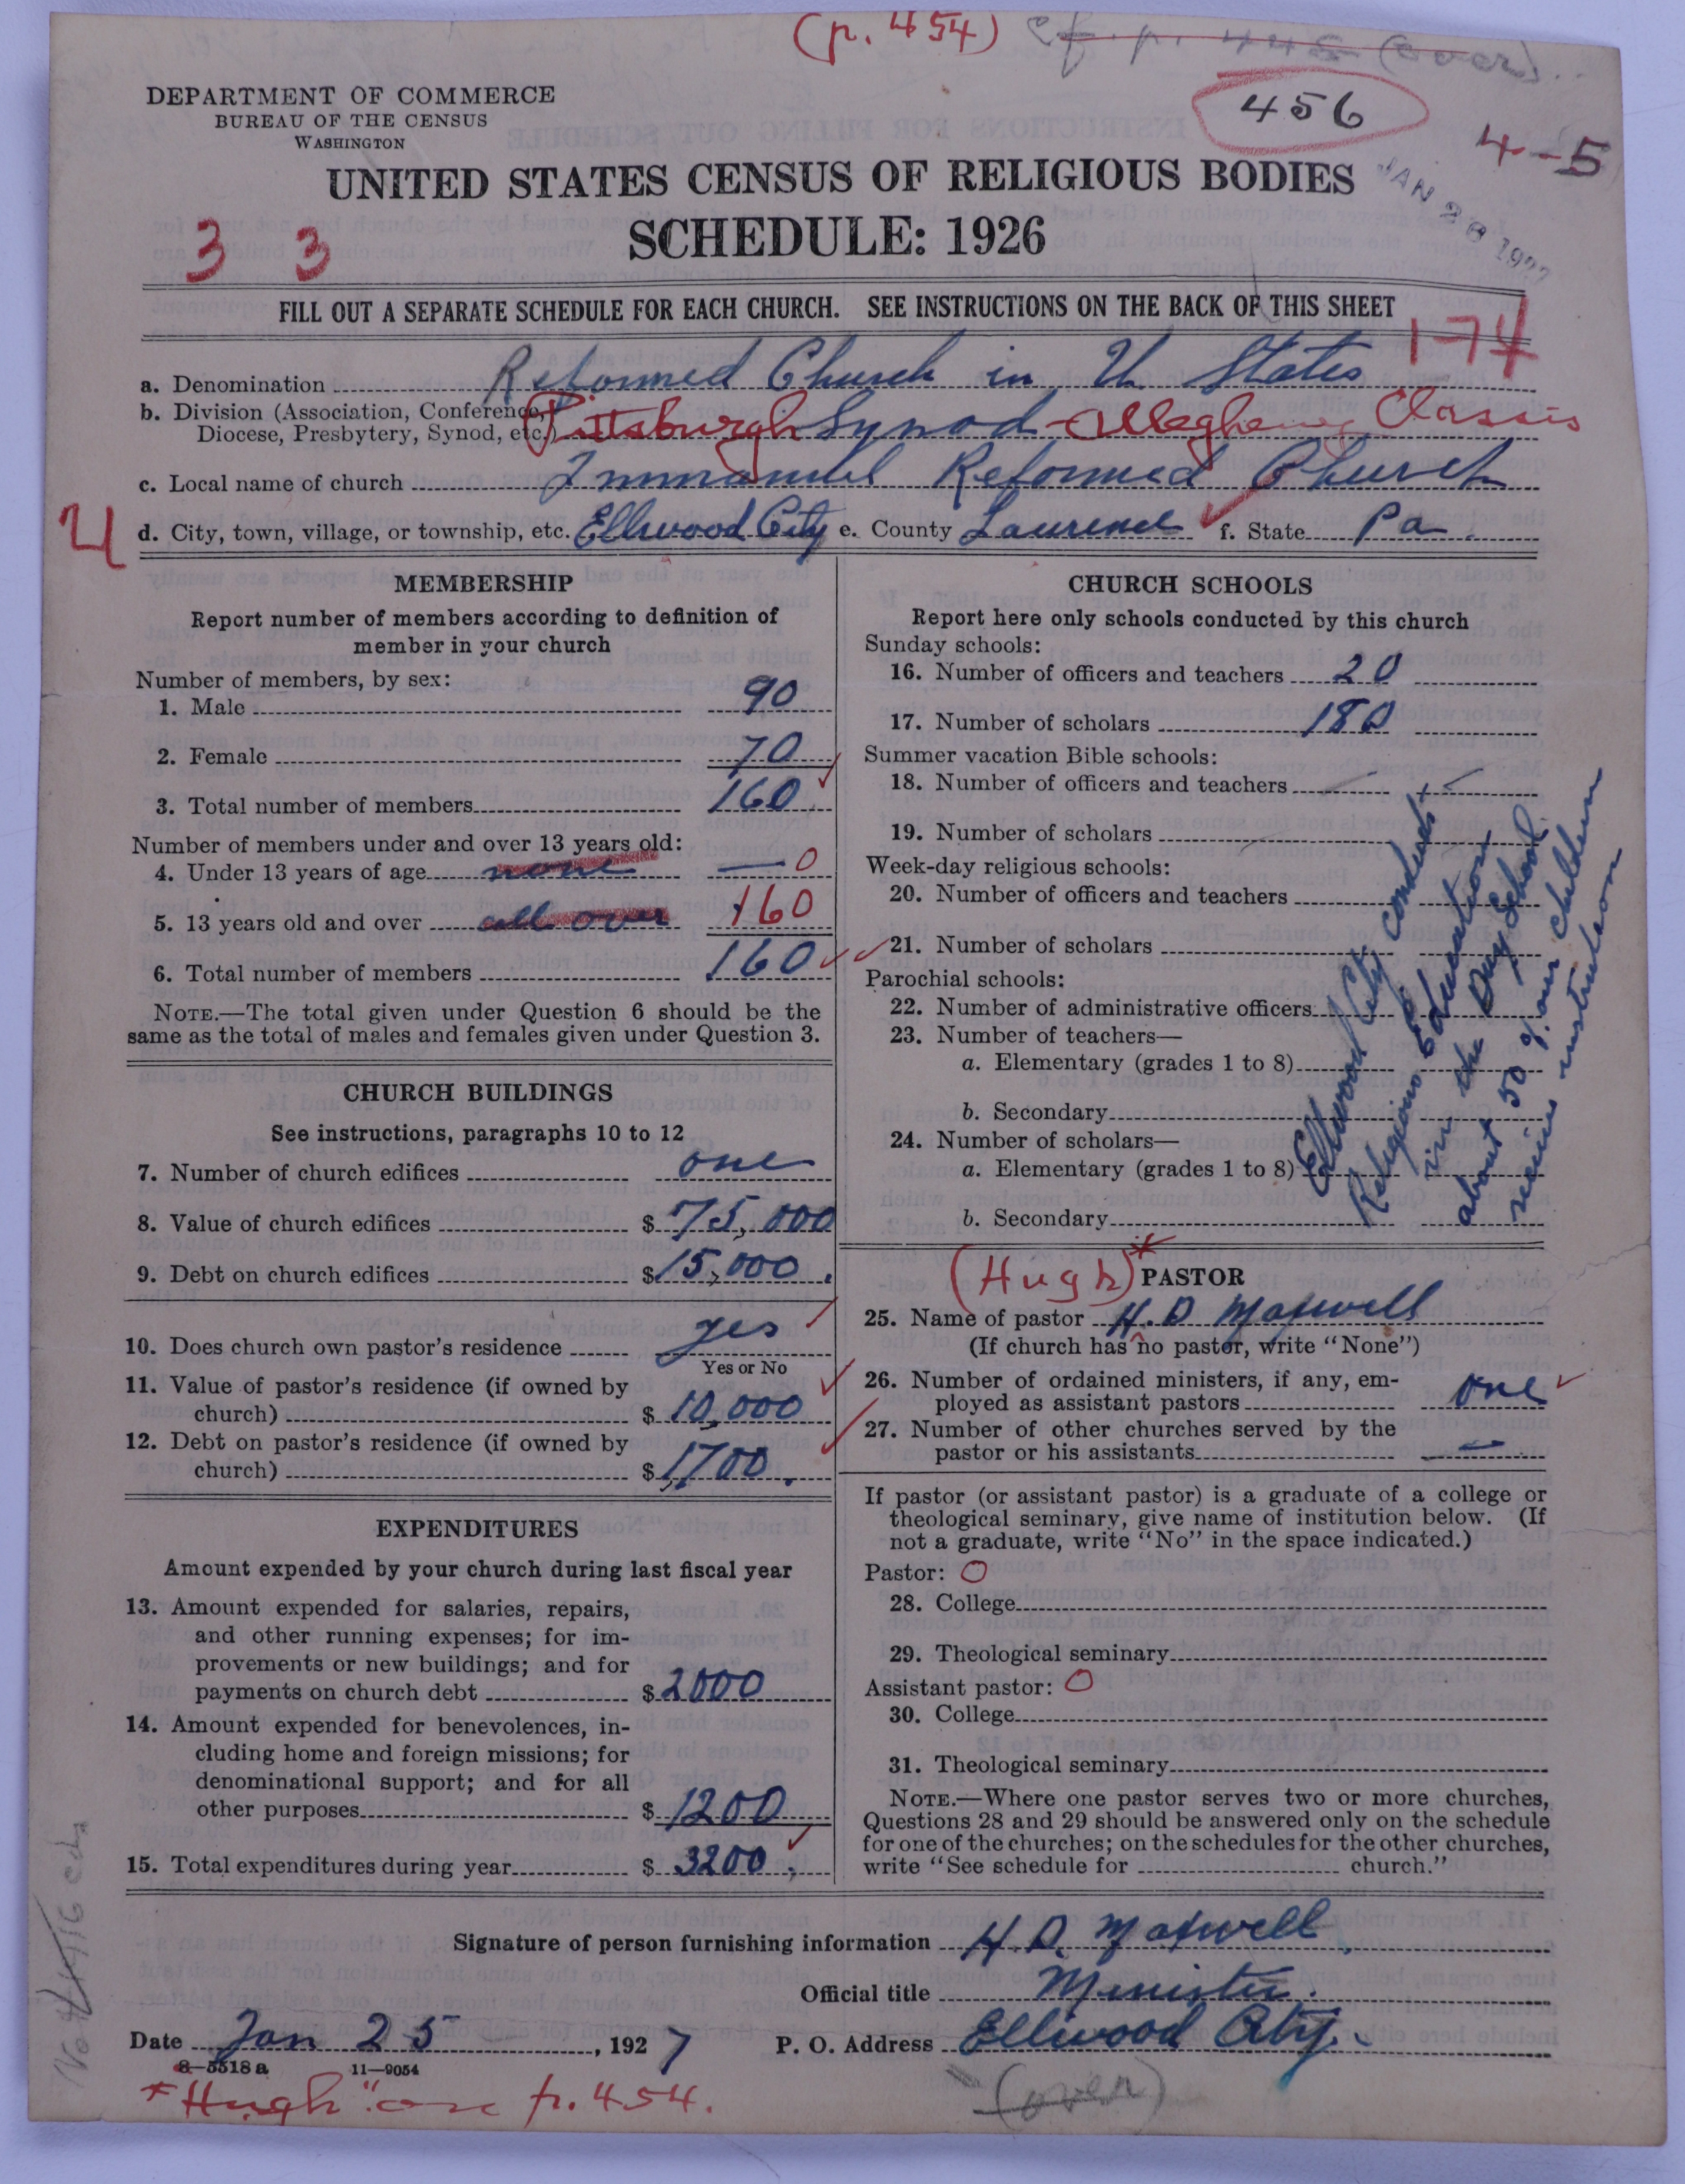 (p. 454) cf. p. 445 (over)
456
4-5
JAN 28 1927
DEPARTMENT OF COMMERCE
BUREAU OF THE CENSUS
WASHINGTON
UNITED STATES CENSUS OF RELIGIOUS BODIES
SCHEDULE: 1926
3 3
FILL OUT A SEPARATE SCHEDULE FOR EACH CHURCH. SEE INSTRUCTIONS ON THE BACK OF THIS SHEET
174
a. Denomination Reformed Church in U States
b. Division (Association, Conference,
Diocese, Presbytery, Synod, etc.) Pittsburgh Synod - Allegheny Classis
c. Local name of church Immanuel Reformed Church
4
d. City, town, village, or township, etc. Ellwood City e. County Lawrence f. State Pa.
MEMBERSHIP
Report number of members according to definition of
member in your church
Number of members, by sex:
1. Male 90
2. Female 70
3. Total number of members 160
Number of members under and over 13 years old:
4. Under 13 years of age none — 0
5. 13 years old and over all over 160
6. Total number of members 160
NOTE.—The total given under Question 6 should be the
same as the total of males and females given under Question 3.
CHURCH BUILDINGS
See instructions, paragraphs 10 to 12
7. Number of church edifices one
8. Value of church edifices $ 75,000
9. Debt on church edifices $ 15,000.
10. Does church own pastor's residence yes
Yes or No
11. Value of pastor's residence (if owned by
church) $ 10,000
12. Debt on pastor's residence (if owned by
church) $ 1700.
EXPENDITURES
Amount expended by your church during last fiscal year
13. Amount expended for salaries, repairs,
and other running expenses; for im-
provements or new buildings; and for
payments on church debt $ 2000
14. Amount expended for benevolences, in-
cluding home and foreign missions; for
denominational support; and for all
other purposes $ 1200
15. Total expenditures during year $ 3200.
CHURCH SCHOOLS
Report here only schools conducted by this church
Sunday schools:
16. Number of officers and teachers 20
17. Number of scholars 180
Summer vacation Bible schools:
18. Number of officers and teachers
19. Number of scholars
Week-day religious schools:
20. Number of officers and teachers
21. Number of scholars
Parochial schools:
22. Number of administrative officers
23. Number of teachers—
a. Elementary (grades 1 to 8)
b. Secondary
24. Number of scholars—
a. Elementary (grades 1 to 8)
b. Secondary
Ellwood City conducts
Religious Education
in the Day School
about 50 % our children
receive instruction
(Hugh)* PASTOR
25. Name of pastor H. D Maxwell
(If church has no pastor, write "None")
26. Number of ordained ministers, if any, em-
ployed as assistant pastors one
27. Number of other churches served by the
pastor or his assistants —
If pastor (or assistant pastor) is a graduate of a college or
theological seminary, give name of institution below. (If
not a graduate, write "No" in the space indicated.)
Pastor: O
28. College
29. Theological seminary
Assistant pastor: O
30. College
31. Theological seminary
NOTE.—Where one pastor serves two or more churches,
Questions 28 and 29 should be answered only on the schedule
for one of the churches; on the schedules for the other churches,
write "See schedule for church."
Signature of person furnishing information H. D. Maxwell
Official title Minister.
Date Jan 25, 1927 P. O. Address Ellwood City.
8-5518 a 11-9054
*"Hugh" on p. 454.
(over)